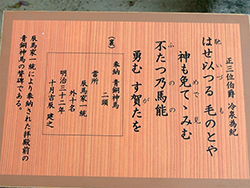 正三位伯爵 冷泉為紀
はせ以つる 毛のとや
馳 いづ も
神も免でゝみむ
め み
不たつ乃馬能
ふ の の
勇む すがたを
が
(裏)
奉納 青銅神馬 二頭
当所
辰馬家一統
外十名
明治三十二年
十月吉辰 建之
辰馬家一統により奉納された拝殿前の
青銅神馬の賛碑である。